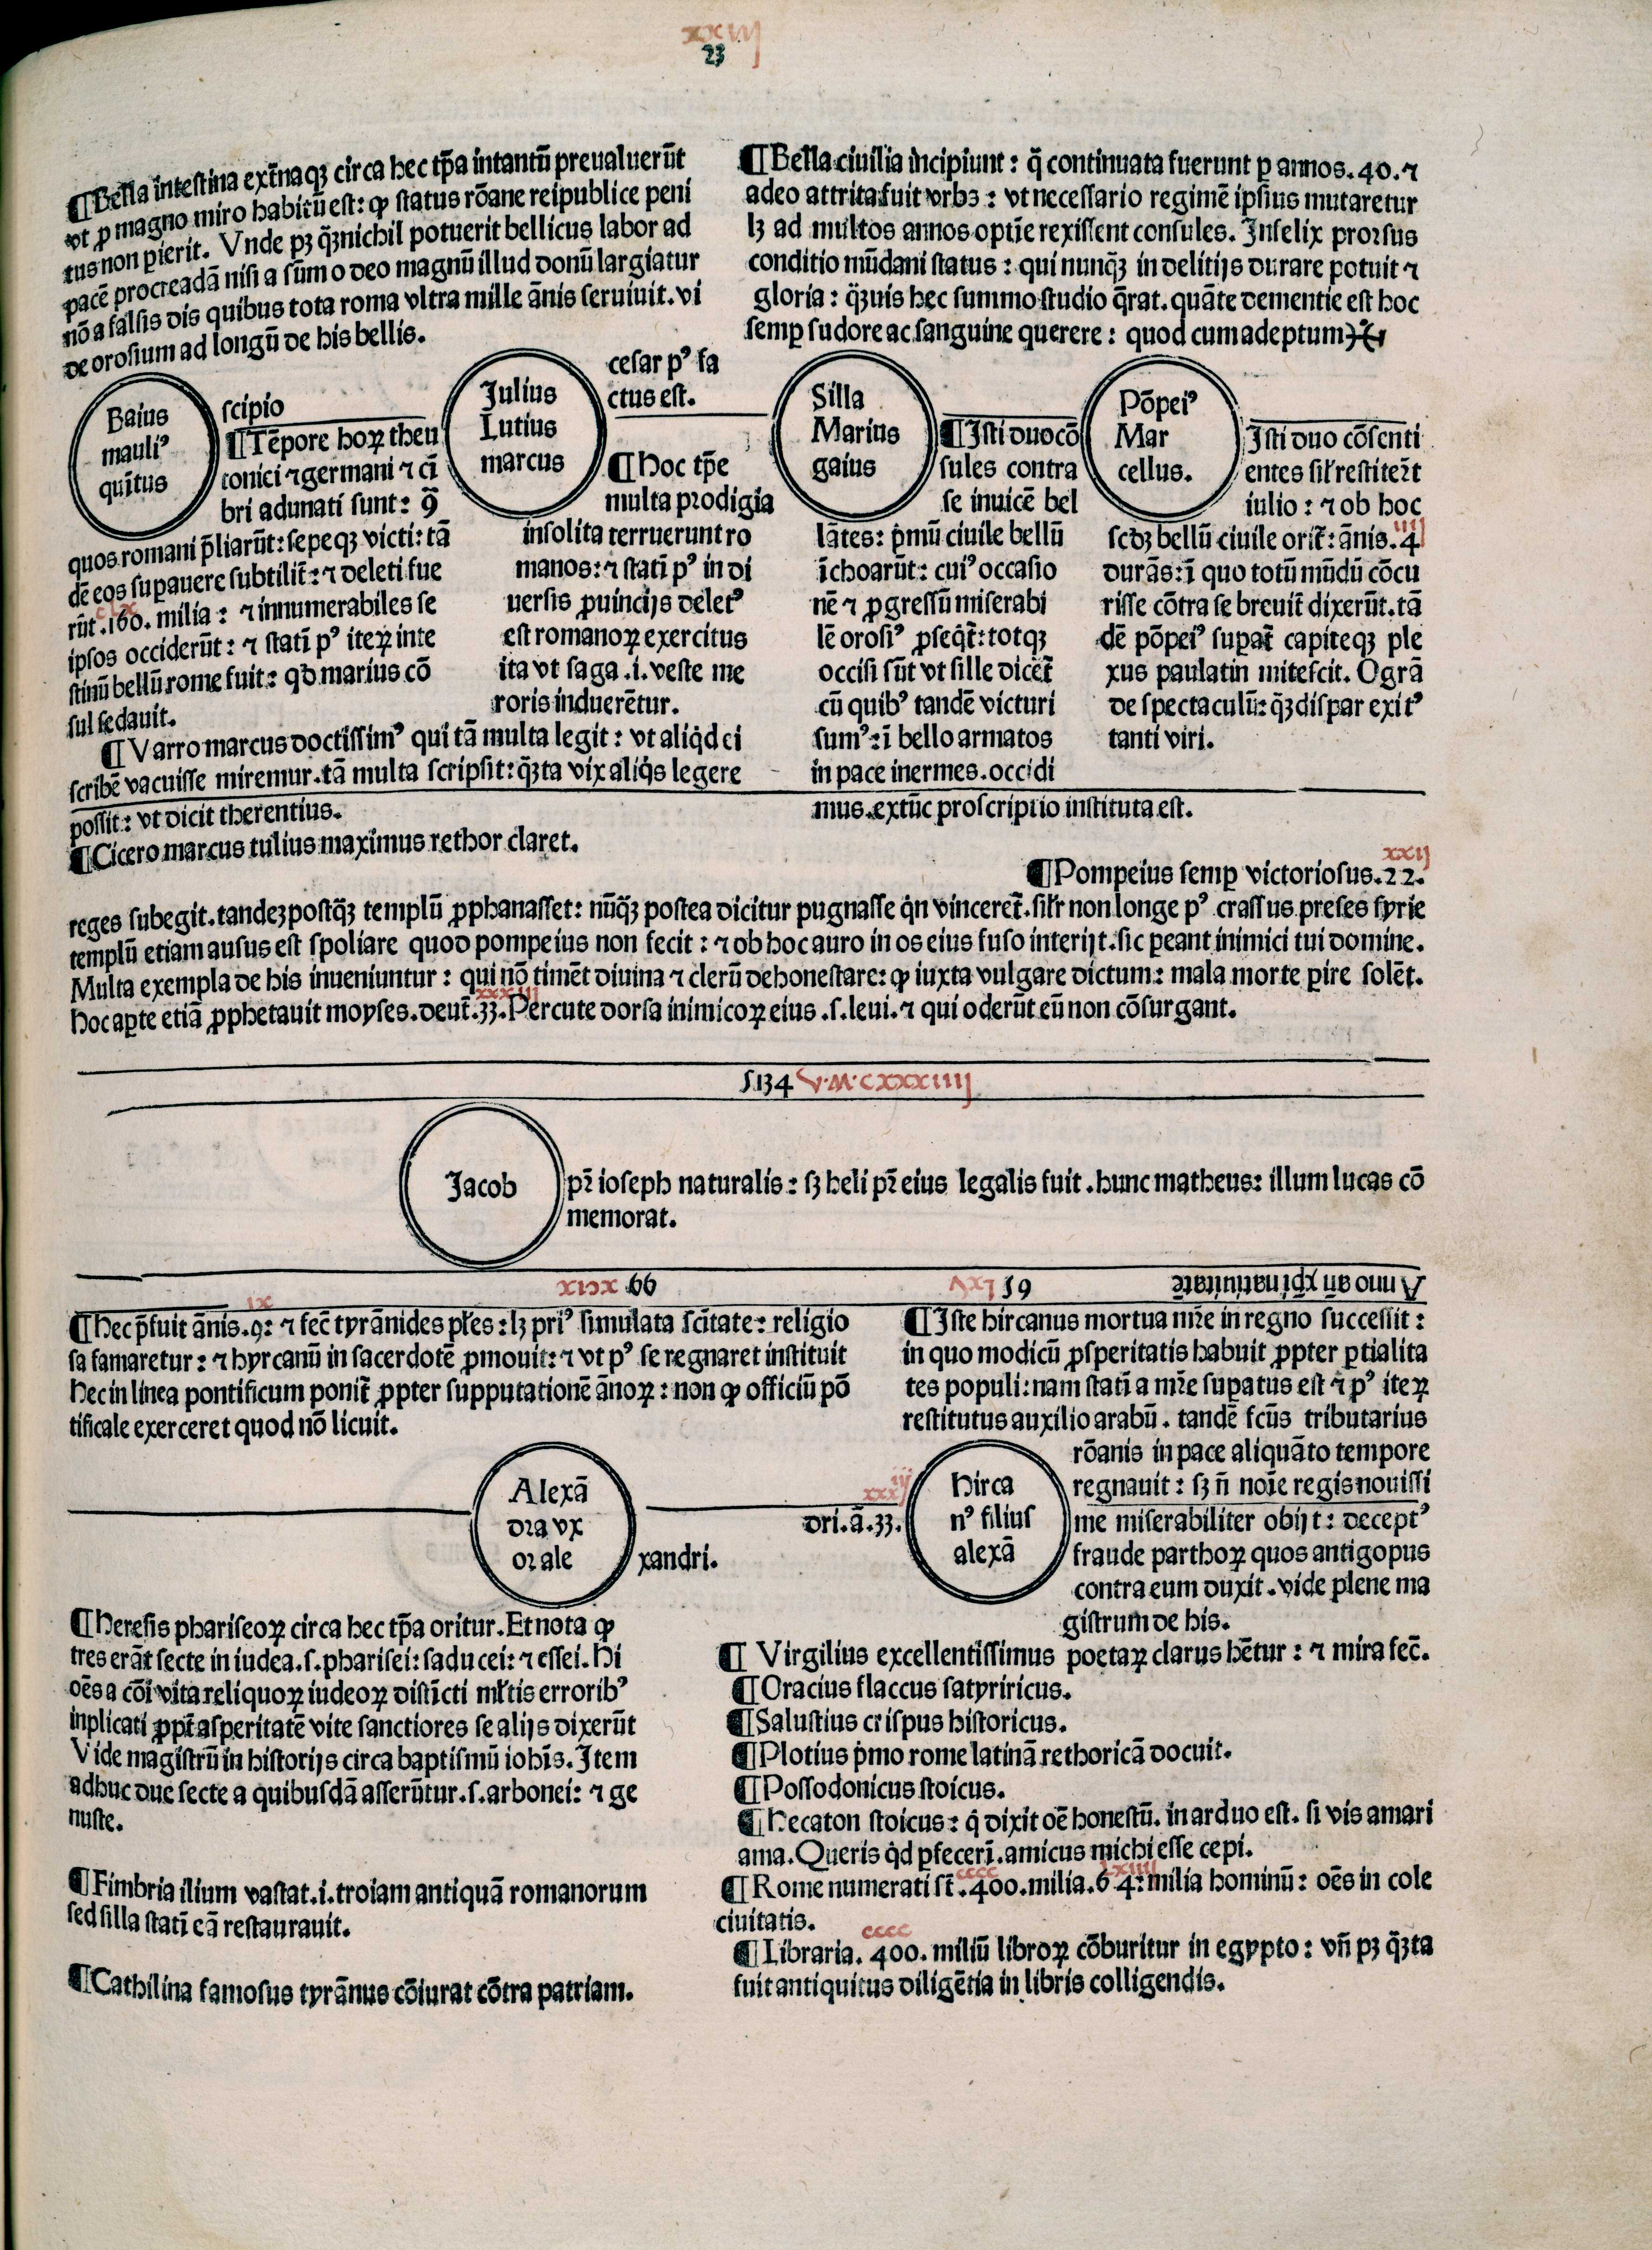 xxiij
23
¶Bella intestina ext̄naqꝫ circa hec tp̄a intantū preualuerūt
vt ꝑ magno miro habitū est: ꝙ status rōane reipublice peni
tus non ꝑierit. Vnde pꝫ q̄ꝫnichil potuerit bellicus labor ad
pacē procreadā nisi a sūmo deo magnū illud donū largiatur
nō a falsis dis quibus tota roma vltra mille ānis seruiuit. vi
de orosium ad longū de his bellis.
¶Bella ciuilia incipiunt: q̄ continuata fuerunt ꝑ annos. 40. ⁊
adeo attrita fuit vrbs: vt necessario regimē ipsius mutaretur
lꝫ ad multos annos optīe rexissent consules. Infelix prorsus
conditio mūdani status: qui nunq̄ꝫ in delitijs durare potuit ⁊
gloria: q̄ꝫuis hec summo studio q̄rat. quāte dementie est hoc
semꝑ sudore ac sanguine querere: quod cum adeptum
Baius
mauliꝰ
quītus
scipio
¶Tēpore hoꝝ theu
tonici ⁊ germani ⁊ cī
bri adunati sunt: ꝯ̄
quos romani p̄liarūt: sepeqꝫ victi: tā
dē eos suꝑauere subtilit̄: ⁊ deleti fue
clx
rūt .160. milia: ⁊ innumerabiles se
ipsos occiderūt: ⁊ statī pꝰ iteꝝ inte
stinū bellū rome fuit: qd̄ marius cō
sul sedauit.
Julius
Lutius
marcus
cesar pꝰ fa
ctus est.
¶Hoc tp̄e
multa prodigia
insolita terruerunt ro
manos: ⁊ statī pꝰ in di
uersis ꝓuincijs deletꝰ
est romanoꝝ exercitus
ita vt saga .i. veste me
roris induerētur.
Silla
Marius
gaius
¶Isti duo cō
sules contra
se inuicē bel
lātes: p̄mū ciuile bellū
īchoarūt: cuiꝰ occasio
nē ⁊ ꝓgressū miserabi
lē orosiꝰ ꝓseq̄t̄: totqꝫ
occisi sūt vt sille dicet̄
cū quibꝰ tandē victuri
sumꝰ: ī bello armatos
in pace inermes. occidi
mus. extūc proscriptio instituta est.
Pōpeiꝰ
Mar
cellus.
Isti duo cōsenti
entes sil̄r restiter̄t
iulio: ⁊ ob hoc
scd̄ꝫ bellū ciuile orit̄: ānis. 4
iiij
durās: ī quo totū mūdū cōcu
risse cōtra se breuit̄ dixerūt. tā
dē pōpeiꝰ suꝑat̄ capiteqꝫ ple
xus paulatin mitescit. O grā
de spectaculū: q̄ꝫ dispar exitꝰ
tanti viri.
¶Varro marcus doctissimꝰ qui tā multa legit: vt aliq̇d ei
scribē vacuisse miremur. tā multa scripsit: q̄ꝫta vix aliq̇s legere
possit: vt dicit therentius.
¶Cicero marcus tulius maximus rethor claret.
xxij
¶Pompeius semꝑ victoriosus. 22.
reges subegit. tandeꝫ postq̄ꝫ templū ꝓphanasset: nūq̄ꝫ postea dicitur pugnasse q̇n vinceret̄. sil̄r non longe pꝰ crassus preses syrie
templū etiam ausus est spoliare quod pompeius non fecit: ⁊ ob hoc auro in os eius fuso interijt. sic ꝑeant inimici tui domine.
Multa exempla de his inueniuntur: qui nō timēt diuina ⁊ clerū dehonestare: ꝙ iuxta vulgare dictum: mala morte ꝑire solēt.
xxxiij
hoc aꝑte etiā ꝓphetauit moyses. deut̄. 33. Percute dorsa inimicoꝝ eius .s. leui. ⁊ qui oderūt eū non cōsurgant.
5134 V.M.CXXXIIIJ
Jacob
pr̄ ioseph naturalis: sꝫ heli pr̄ eius legalis fuit. hunc matheus: illum lucas cō
memorat.
Anno an̄ xp̄i natiuitatē
59 LXV
99 XCIX
ix
¶Hec p̄fuit ānis. 9: ⁊ fec̄ tyrānides pl̄es: lꝫ priꝰ simulata sc̄itate: religio
sa famaretur: ⁊ hyrcanū in sacerdotē ꝓmouit: ⁊ vt pꝰ se regnaret instituit
hec in linea pontificum ponit̄ ꝓpter supputationē ānoꝝ: non ꝙ officiū pō
tificale exerceret quod nō licuit.
Alexā
dra vx
or ale
xandri.
¶Iste hircanus mortua mr̄e in regno successit:
in quo modicū ꝓsperitatis habuit ꝓpter ꝑtialita
tes populi: nam statī a mr̄e suꝑatus est ⁊ pꝰ iteꝝ
restitutus auxilio arabū. tandē fc̄us tributarius
rōanis in pace aliquāto tempore
regnauit: sꝫ n̄ noīe regis nouissi
me miserabiliter obijt: deceptꝰ
fraude parthoꝝ quos antigopus
contra eum duxit. vide plene ma
gistrum de his.
Hirca
nꝰ filius
alexā
xxxiij
dri. ā. 33.
¶Heresis phariseoꝝ circa hec tp̄a oritur. Et nota ꝙ
tres erāt secte in iudea. s. pharisei: saducei: ⁊ essei. Hi
oēs a cōi vita reliquoꝝ iudeoꝝ distīcti ml̄tis erroribꝰ
inplicati ꝓpt̄ asperitatē vite sanctiores se alijs dixerūt
Vide magistrū in historijs circa baptismū iohīs. Item
adhuc due secte a quibusdā asserūtur. s. arbonei: ⁊ ge
nuste.
¶Fimbria ilium vastat .i. troiam antiquā romanorum
sed silla statī eā restaurauit.
¶Cathilina famosus tyrānus cōiurat cōtra patriam.
¶Virgilius excellentissimus poetaꝝ clarus hētur: ⁊ mira fec̄.
¶Oracius flaccus satyriricus.
¶Salustius crispus historicus.
¶Plotius p̄mo rome latinā rethoricā docuit.
¶Possodonicus stoicus.
¶Hecaton stoicus: q̇ dixit oē honestū. in arduo est. si vis amari
ama. Queris q̇d ꝓfecerī. amicus michi esse cepi.
cccc lxiiij
¶Rome numerati st̄ .400. milia. 64: milia hominū: oēs in cole
ciuitatis.
cccc
¶Libraria. 400. miliū libroꝝ cōburitur in egypto: vn̄ pꝫ q̄ꝫta
fuit antiquitus diligētia in libris colligendis.